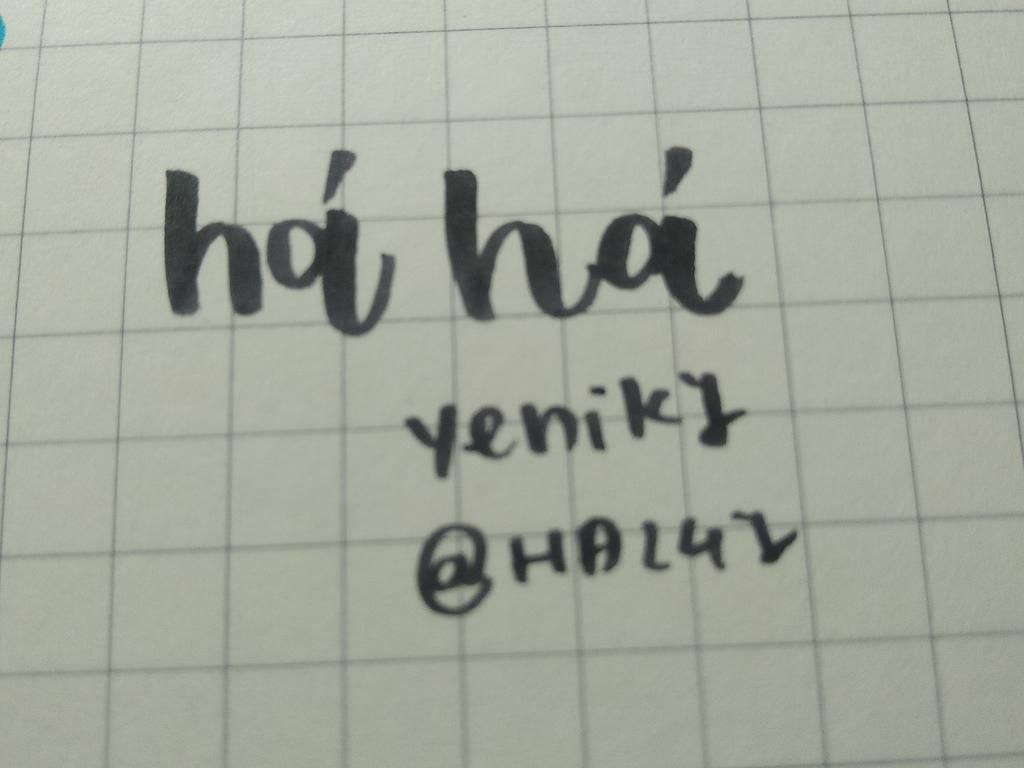 há há
yeniky
@HA242